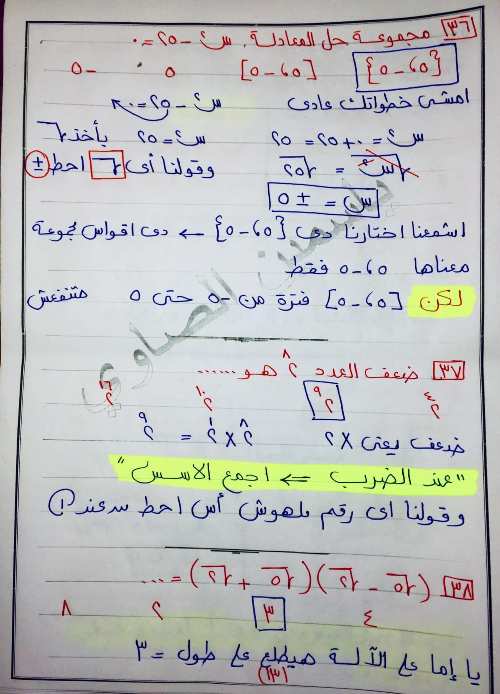 ٣٦ مجموعة حل المعادلة س٢ - ٢٥ = ٠
{-٥ ، ٥} [-٥ ، ٥] ٥ -٥
امشى خطواتك عادى س٢ - ٢٥ = ٠
س٢ = ٠ + ٢٥ = ٢٥ س٢ = ٢٥ بأخذ √
√س٢ = √٢٥ وقولنا أى √ احط ±
س = ± ٥
اشمعنا اختارنا دى {-٥ ، ٥} ← دى اقواس مجموعة
معناها ٥ ، -٥ فقط
لكن [-٥ ، ٥] فترة من -٥ حتى ٥ متنفعش
٣٧ ضعف العدد ٢^٨ هو ......
٢^٤ ٢^٩ ٢^١٠ ٢^١٦
ضعف يعنى × ٢ ٢^٨ × ٢^١ = ٢^٩
"عند الضرب ← اجمع الاسس"
وقولنا اى رقم ملهوش أس احط من عند ١
٣٨ (√٥ - √٢)(√٥ + √٢) = ...
٤ ٣ ٢ ٨
يا إما على الآلة هيطلع على طول = ٣
(١٣)
ياسمين الصاوي